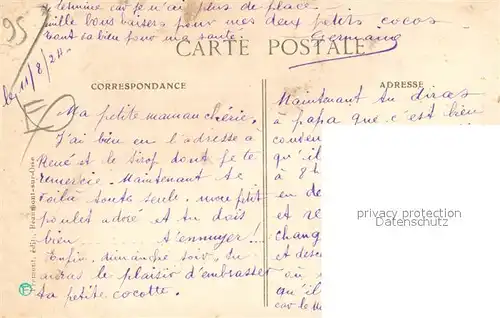 je termine car je n'ai plus de place
mille bons baisers pour mes deux petits cocos
tout va bien pour ma santé.
Germaine
95
CARTE POSTALE
le 11/8/24
CORRESPONDANCE
ADRESSE
Ma petite maman chérie,
J'ai bien eu l'adresse à
René et le sirop dont je te
remercie. Maintenant te
voilà toute seule, mon petit
poulet adoré et tu dois
bien t'ennuyer!
Enfin, dimanche soir, tu
auras le plaisir d'embrasser
ta petite cocotte.
Maintenant tu diras
à papa que c'est bien
conven
qu'il
à 8h
en de
et re
chang
et desc
au
qu'il
car le
Frémont, édit., Beaumont-sur-Oise
privacy protection
Datenschutz